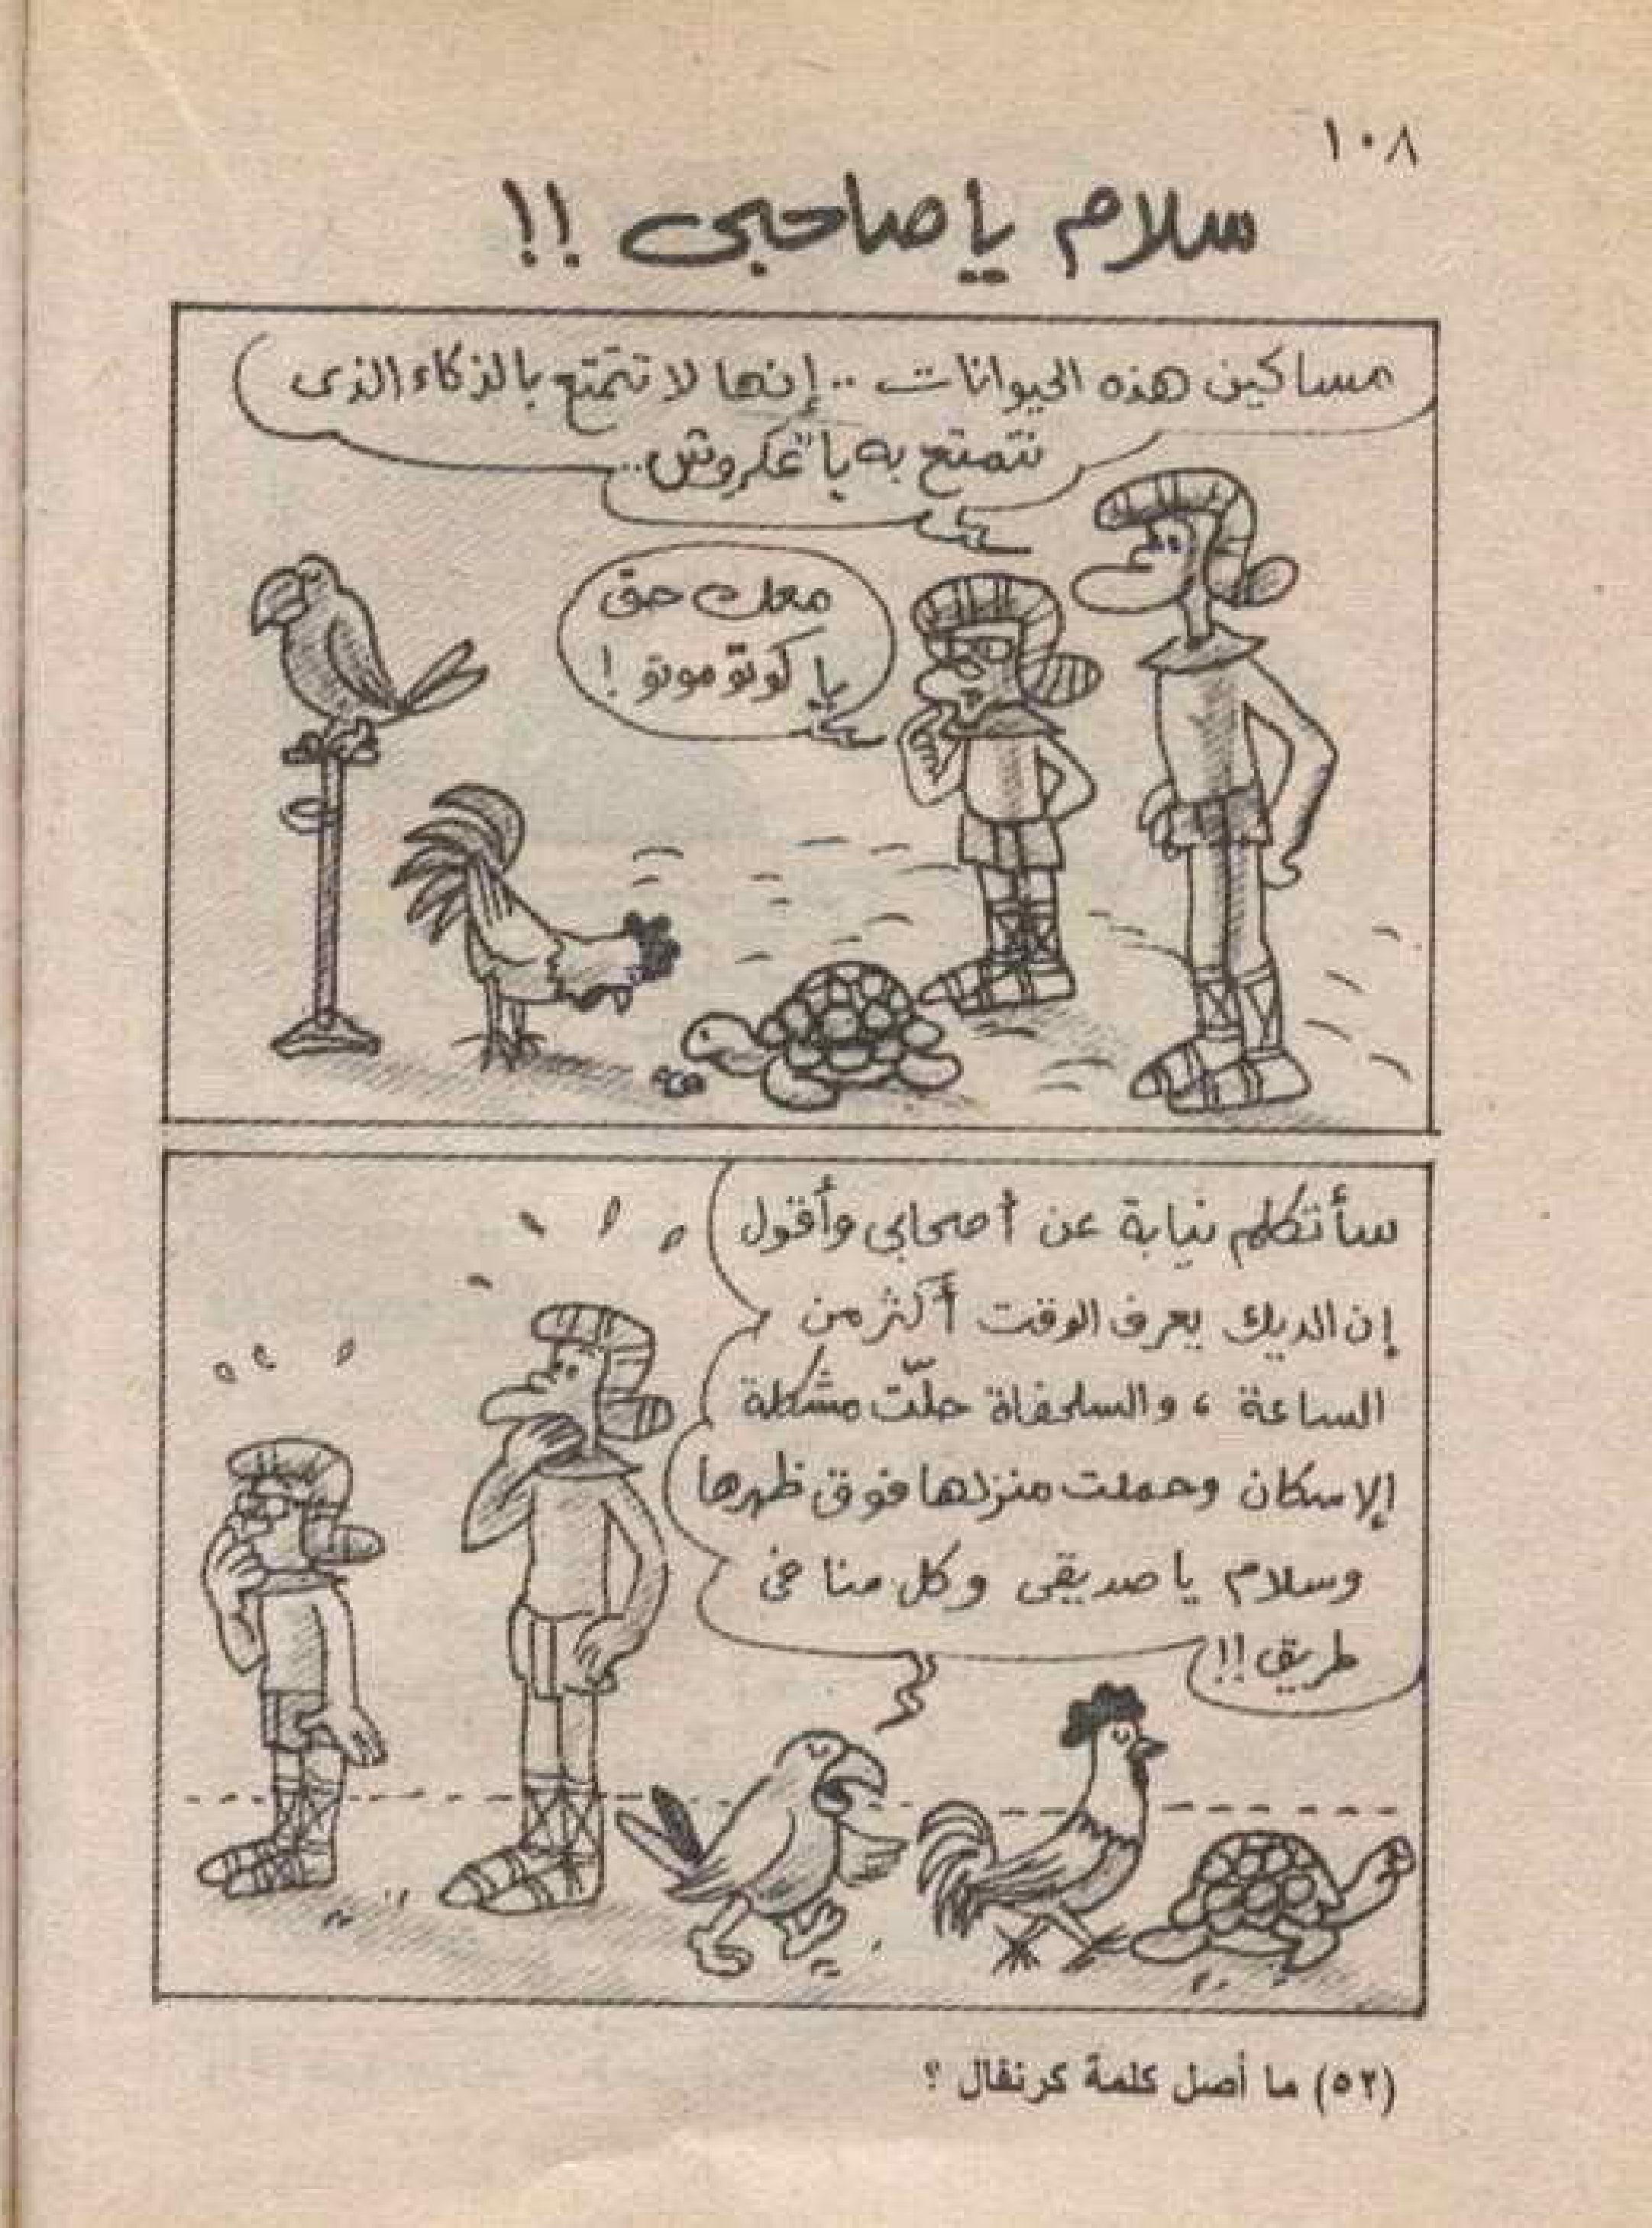 ١٠٨
سلام يا صاحبى !!
مساكين هذه الحيوانات .. إنها لا تتمتع بالذكاء الذى
نتمتع به يا عكروش ..
معك حق
يا كوتوموتو !
سأتكلم نيابة عن أصحابي وأقول
إن الديك يعرف الوقت أكثر من
الساعة ، والسلحفاة حلّت مشكلة
الإسكان وحملت منزلها فوق ظهرها
وسلام يا صديقى وكل منا فى
طريق !!
(٥٢) ما أصل كلمة كرنفال ؟